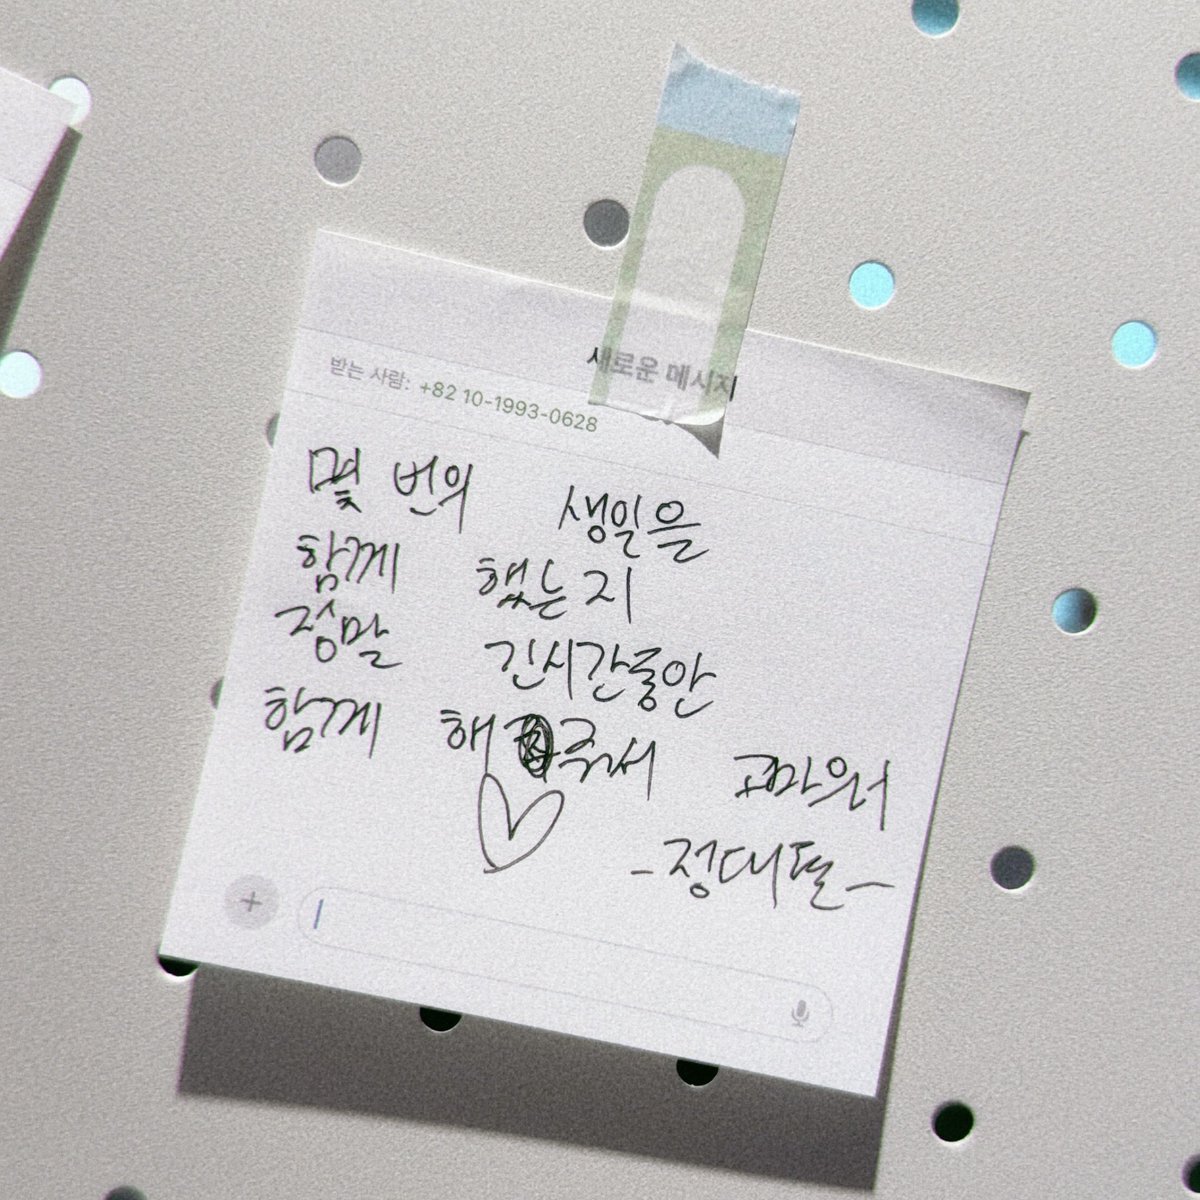 새로운 메시지
받는 사람: +82 10-1993-0628
몇 번의 생일을
함께 했는지
정말 긴시간동안
함께 해 줘서 고마워
-정대현-